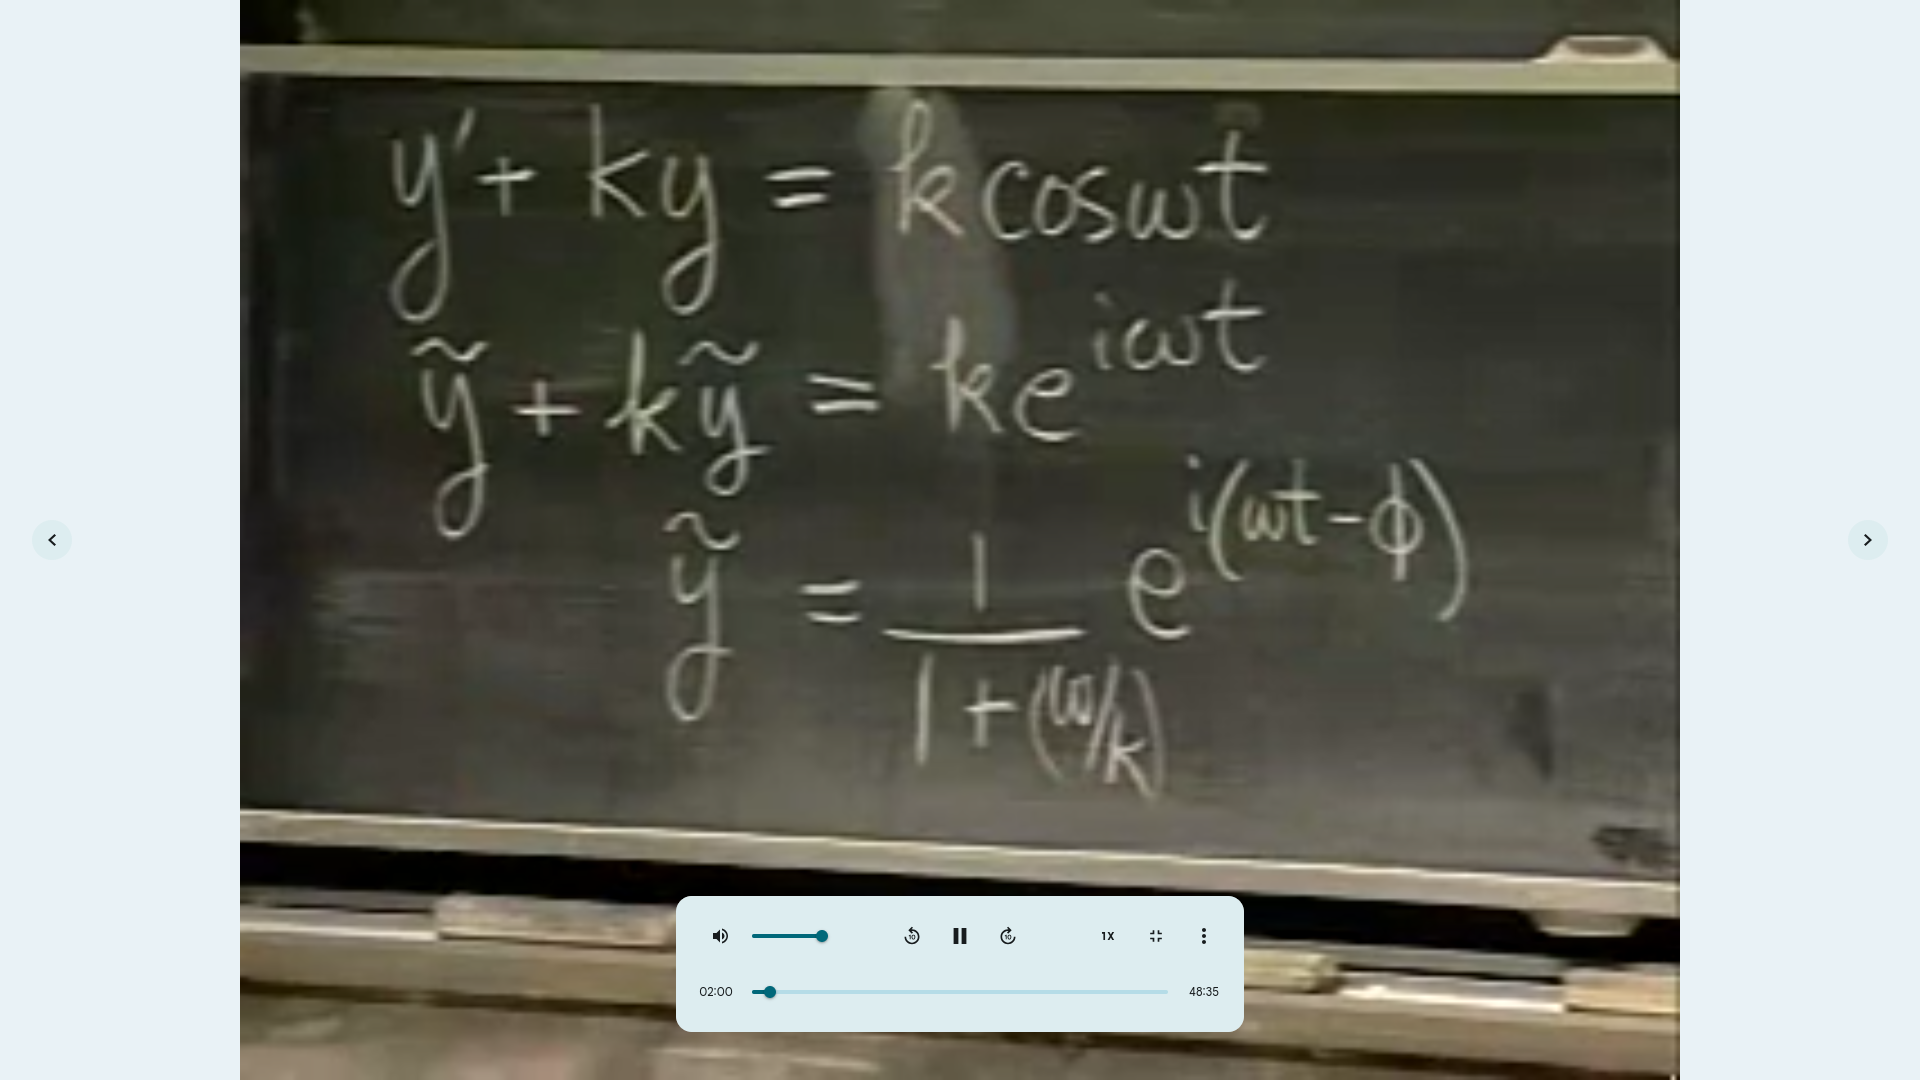 y' + ky = k cos ωt
ỹ + kỹ = k e^{iωt}
ỹ = \frac{1}{1 + (ω/k)} e^{i(ωt - ϕ)}
10
10
1X
02:00
48:35